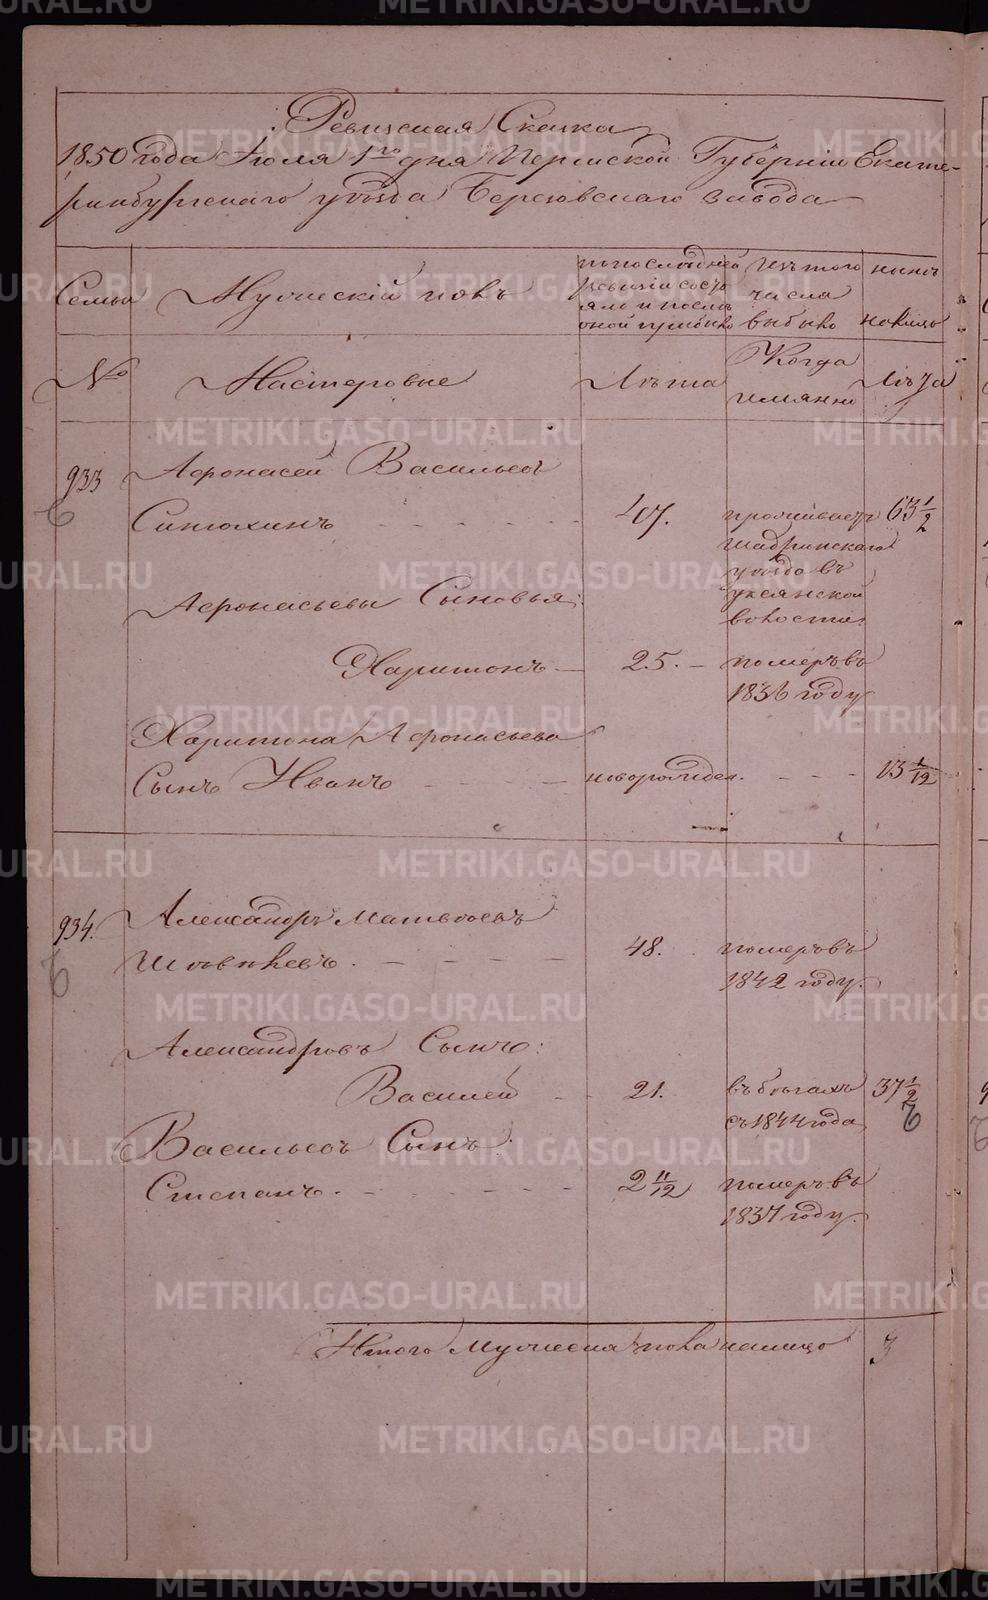 Ревизская Сказка
1850 года Июля 1го дня Пермской Губерніи Екате-
ринбургскаго уѣзда Березовскаго завода
Семьи
Мужескій полъ
по последней ревизіи состояло и после оной прибыло
Изъ того числа выбыло
нынѣ на лицо
№
Мастеровые
Лѣта
Когда имянно
Лѣта
933
Афонасей Васильевъ
Синюхинъ 47. проживаетъ 63 1/2
Шадринскаго
уѣзда въ
Уксянской
волости
Афонасьевы Сыновья:
Харитонъ 25. померъ въ
1836 году
Харитона Афонасьева
Сынъ Иванъ новорожден. 13 1/12
934.
Александръ Матвѣевъ
48. померъ въ
1842 году.
Александровъ Сынъ:
Василей 21. въ бѣгахъ 37 1/2
съ 1844 года
Васильевъ Сынъ:
Степанъ. 2 11/12 померъ въ
1837 году.
Итого мужеска пола налицо 3
METRIKI.GASO-URAL.RU